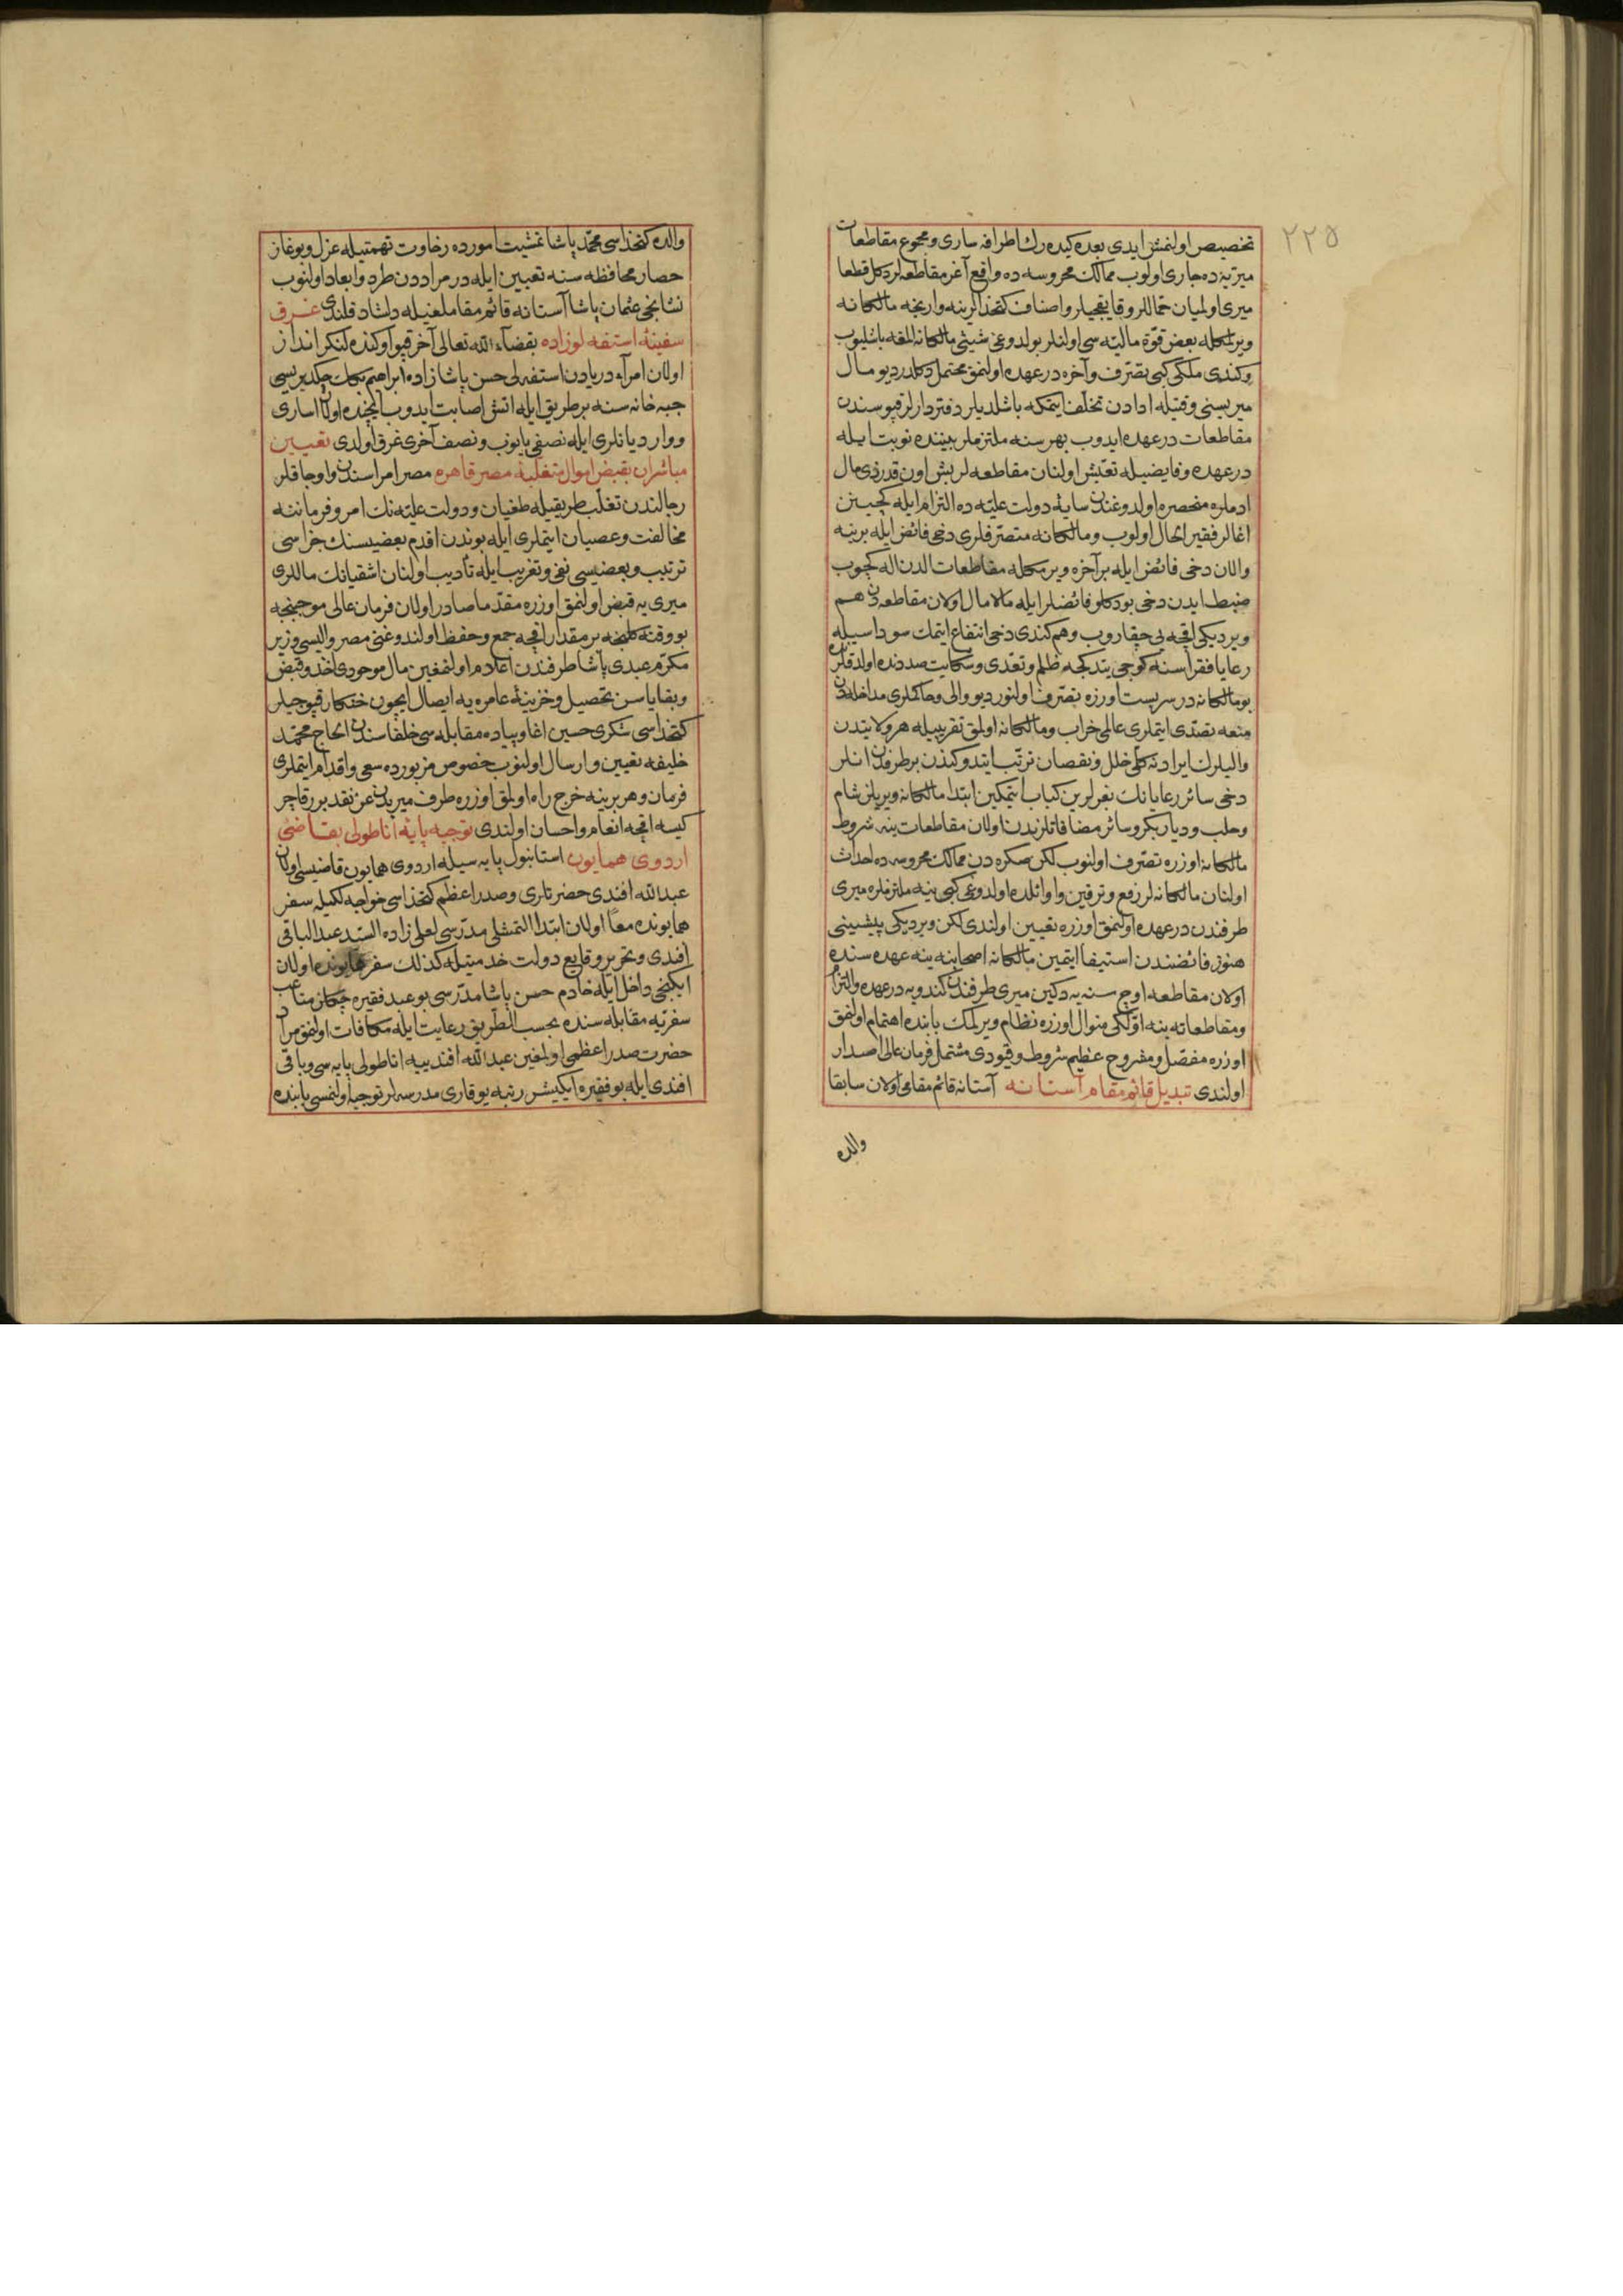 ٢٢٥
تخصیص اولنمش ایدی بعده کیده رك اطرافه ساری و مجموع مقاطعات
میریه ده جاری اولوب ممالك محروسه ده واقع آغر مقاطعه لر دکل قطعا
میری اولمیان حماللر و قایغجیلر و اصناف کتخدالرینه وارنجه مالکانه
ویرلمکله بعض قوّة مالیه سی اولنلر بولدوغی شیئی مالکانه المغه باشلیوب
وکندی ملکی کبی تصرف و آخره در عهده اولنمق محتمل دکلدر دیو مال
میریسنی وقتیله ادادن تخلف ایتمکه باشلدیلر دفتردارلر قپوسندن
مقاطعات در عهده ایدوب بهر سنه ملتزملر بیننده نوبت ایله
در عهده و فایضیله تعیش اولنان مقاطعه لر بش اون قدرذی مال
ادملره منحصره اولدوغندن سایهٔ دولت علیه ده التزام ایله کچینن
اغالر فقیر الحال اولوب و مالکانه متصرفلری دخی فائض ایله برینه
والان دخی فائض ایله بر آخره ویرمکله مقاطعات الدن اله کچوب
ضبط ایدن دخی بو دکلو فائضلر ایله مالامال اولان مقاطعه دن هم
ویردیکی اقچه یی چقاروب وهم کندی دخی انتفاع ایتمك سوداسیله
رعایا فقراسنه کوجی یتدکجه ظلم و تعدی و شکایت صددنده اولدقلرنده
بو مالکانه در سربست اوزره تصرف اولنور دیو والی و حاکملری مداخله دن
منعه تصدی ایتملری عالمی خراب و مالکانه اولمق تقریبیله هر ولایتدن
والیلرك ایرادنه کلی خلل و نقصان ترتب ایتدوکندن بر طرفدن انلر
دخی سائر رعایانك بغرلرین کباب ایتمکین ابتدا مالکانه ویریلن شام
وحلب و دیاربکر و سائر مضافاتلرندن اولان مقاطعات ینه شروط
مالکانه اوزره تصرف اولنوب لکن صکره دن ممالك محروسه ده احداث
اولنان مالکانه لر رفع و ترقین و اوائلده اولدوغی کبی ینه ملتزملره میری
طرفندن در عهده اولنمق اوزره تعیین اولندی لکن ویردیکی پیشینی
هنوز فائضندن استیفا ایتمین مالکانه اصحابنه ینه عهده سنده
اولان مقاطعه اوج سنه یه دکین میری طرفندن کندویه در عهده والتزام
ومقاطعاته ینه اوّلکی منوال اوزره نظام ویرلمك بابنده اهتمام اولنمق
اوزره مفصل و مشروح عظیم شروط و قیودی مشتمل فرمان عالی اصدار
اولندی تبدیل قائم مقام آستانه آستانه قائم مقامی اولان سابقا
والده
والده کتخداسی محمد پاشا تمشیت امورده رخاوت تهمتیله عزل و بوغاز
حصار محافظه سنه تعیین ایله در مراددن طرد و ابعاد اولنوب
نشانجی عثمان پاشا آستانه قائم مقاملغیله دلشاد قلندی غرق
سفینهٔ استفه لوزاده بقضاء الله تعالی آخرقپو اوکنده لنکر انداز
اولان امرآء دریادن استفه لی حسن پاشا زاده ابراهیم بکك چکدیریسی
جبه خانه سنه بر طریق ایله اتش اصابت ایدوب ایچنده اولان اساری
و واردیانلری ایله نصفی یانوب و نصف آخری غرق اولدی تعیین
مباشران بقبض اموال متغلبهٔ مصر قاهره مصر امراسندن و اوجاقلر
رجالندن تغلب طریقیله طغیان و دولت علیه نك امر و فرماننه
مخالفت و عصیان ایتملری ایله بوندن اقدم بعضیسنك جزاسی
ترتیب و بعضیسی نفی و تغریب ایله تأدیب اولنان اشقیانك ماللری
میری یه قبض اولنمق اوزره مقدّما صادر اولان فرمان عالی موجبنجه
بو وقته کلنجه بر مقدار اقچه جمع و حفظ اولندوغنی مصر والیسی وزیر
مکرم عبدی پاشا طرفندن اعلام اولنمغین مال موجودی اخذ و قبض
وبقایاسن تحصیل و خزینهٔ عامره یه ایصال ایچون خنکار قپوجیلر
کتخداسی شکری حسین اغا و پیاده مقابله سی خلفاسندن الحاج محمد
خلیفه تعیین و ارسال اولنوب خصوص مزبورده سعی و اقدام ایتملری
فرمان و هر برینه خرج راه اولمق اوزره طرف میریدن عن نقد برر قاچر
کیسه اقچه انعام و احسان اولندی توجیه پایهٔ اناطولی بقاضئ
اردوی همایون استانبول پایه سیله اردوی همایون قاضیسی اولان
عبدالله افندی حضرتلری و صدر اعظم کتخداسی خواجه لکیله سفر
همایونده معًا اولان ابتدا التمشلی مدرّسی لعلی زاده السید عبد الباقی
افندی و تحریر وقایع دولت خدمتیله کذلك سفر همایونده اولان
ایکنجی داخل ایله خادم حسن پاشا مدرّسی بو عبد فقیره چکلن متاعب
سفریه مقابله سنده بحسب الطریق رعایت ایله مکافات اولنمق مراد
حضرت صدر اعظمی اولمغین عبد الله افندییه اناطولی پایه سی و باقی
افندی ایله بو فقیره ایکیشر رتبه یوقاری مدرسه لر توجیه اولنمسی بابنده